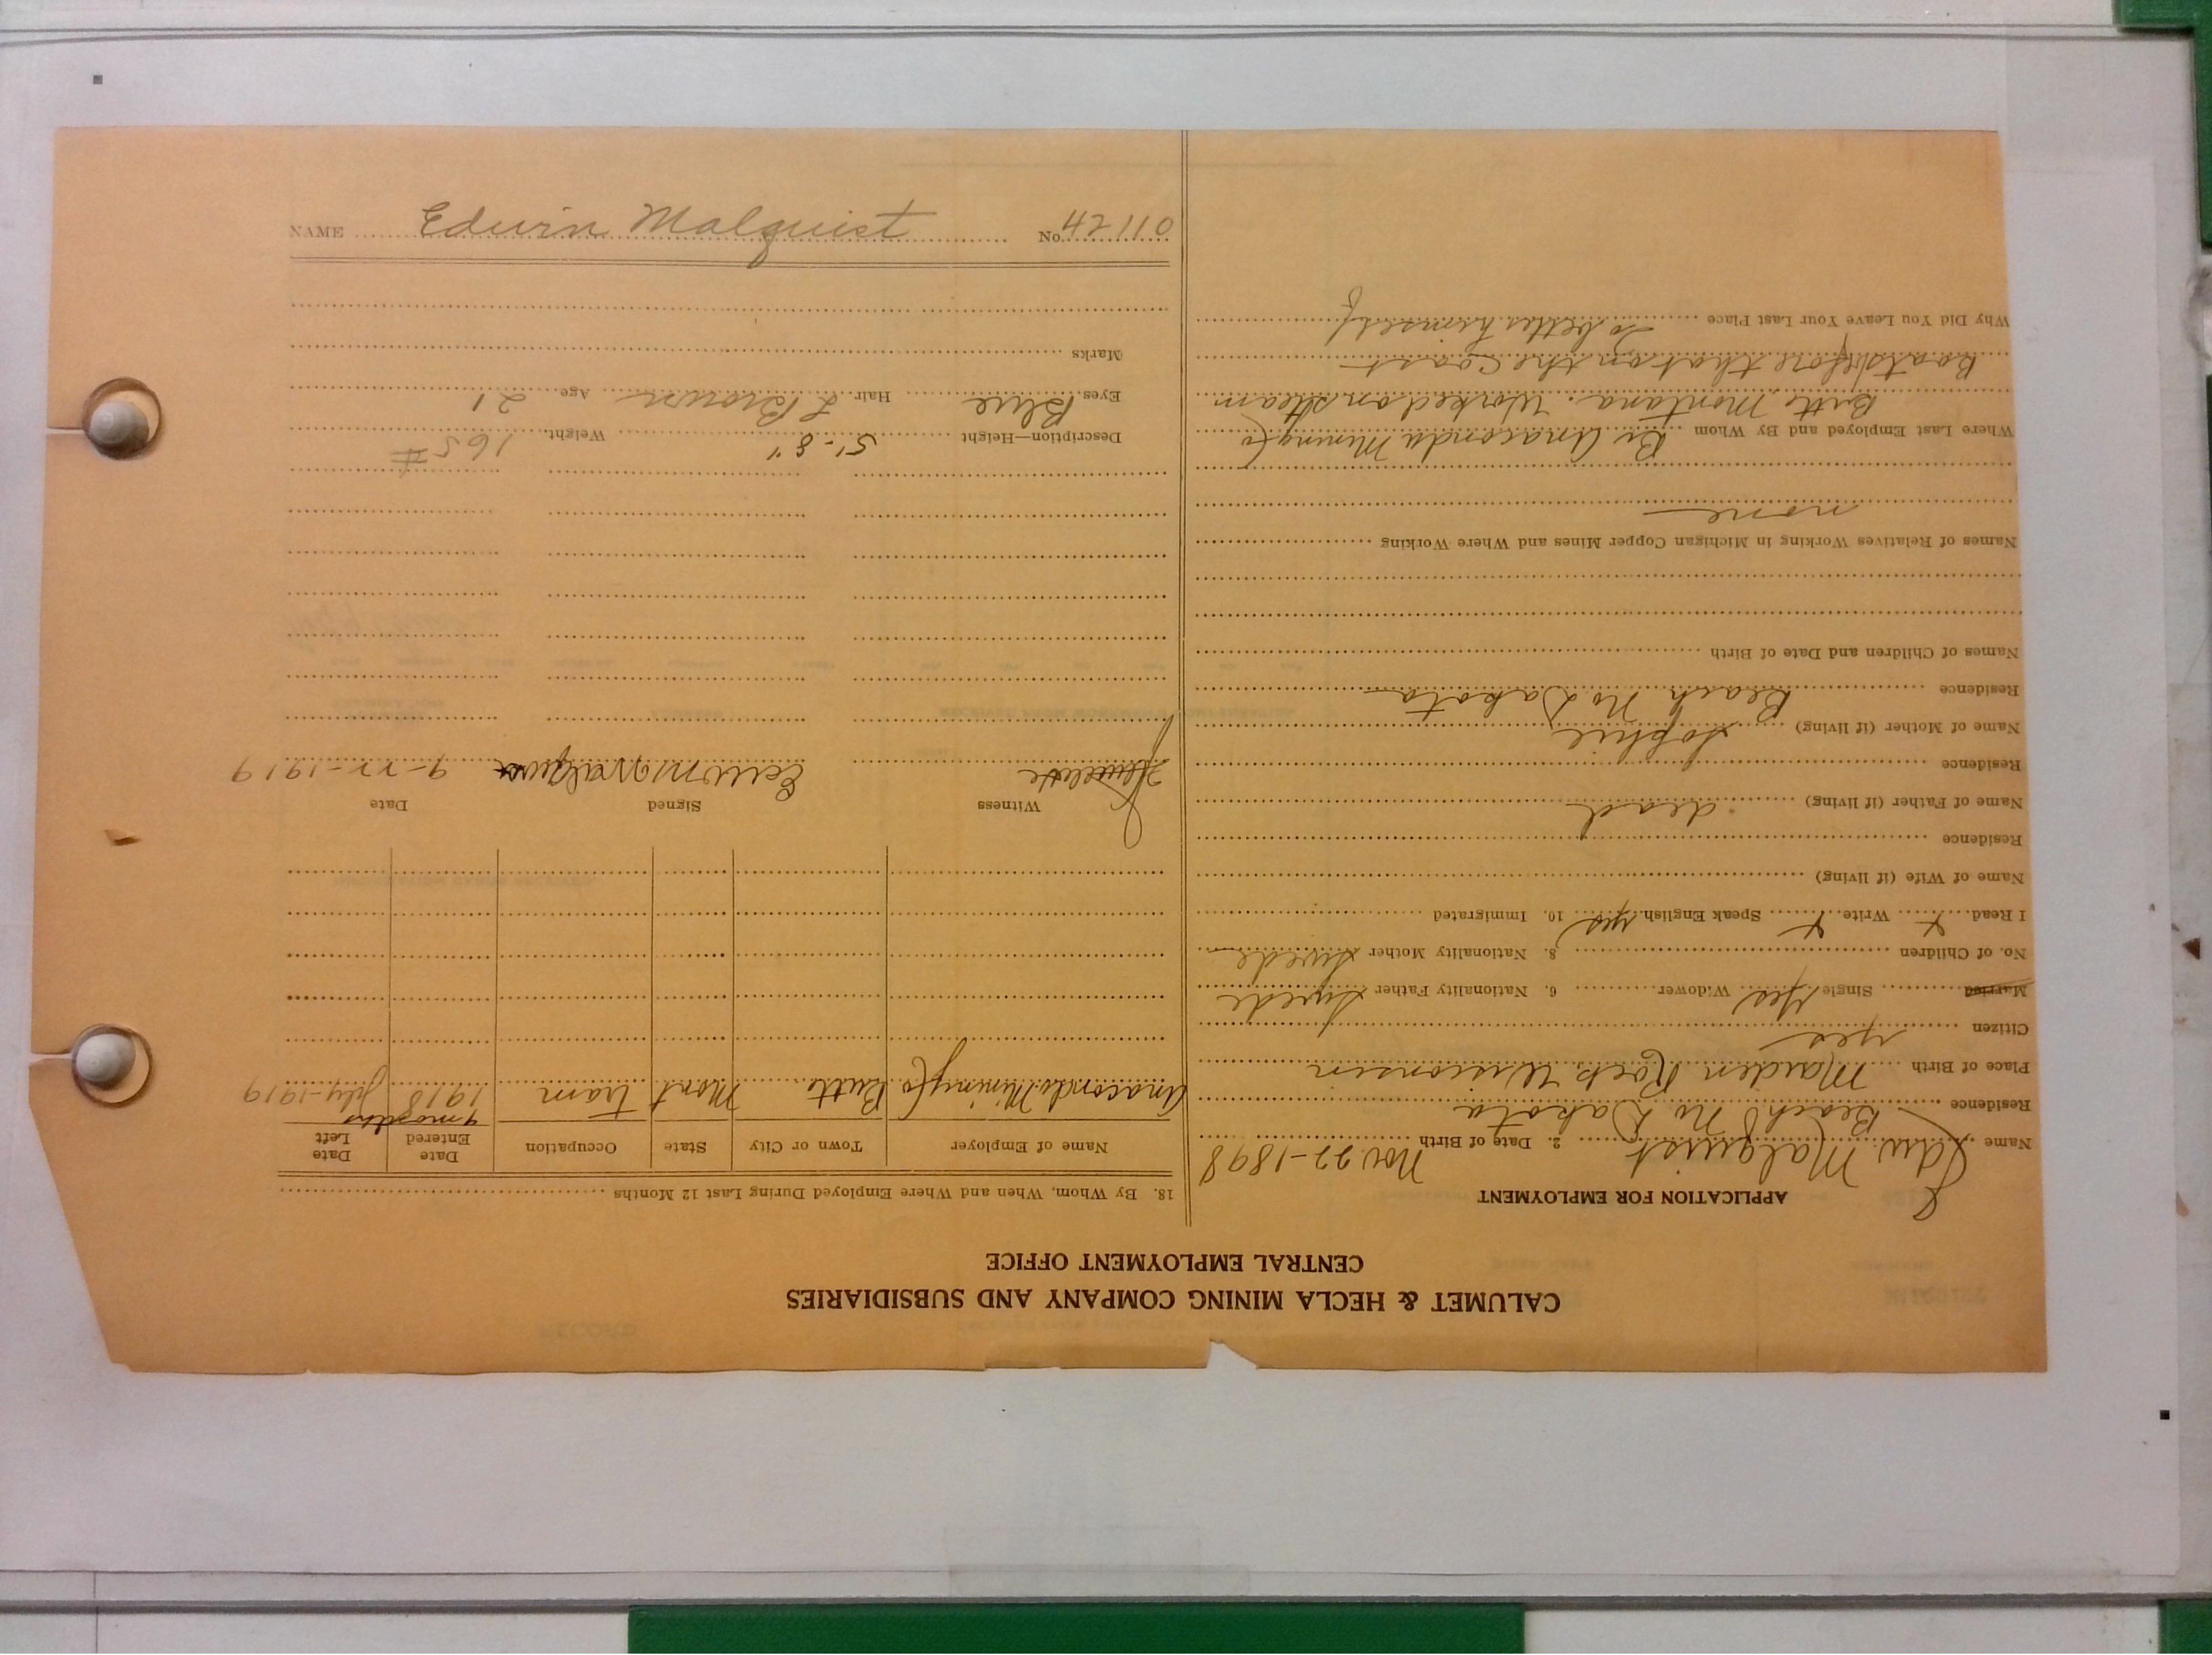 CALUMET & HECLA MINING COMPANY AND SUBSIDIARIES
CENTRAL EMPLOYMENT OFFICE
APPLICATION FOR EMPLOYMENT
Name Edw. Malquist 2. Date of Birth Nov 22-1898
Residence Beach No Dakota
Place of Birth Maiden Rock Wisconsin
Citizen yes
Married Single Yes Widower 6. Nationality Father Swede
No. of Children 8. Nationality Mother Swede
I Read x Write x Speak English yes 10. Immigrated
Name of Wife (if living)
Residence
Name of Father (if living) dead
Residence
Name of Mother (if living) Sophie
Residence Beach No Dakota
Names of Children and Date of Birth
Names of Relatives Working in Michigan Copper Mines and Where Working
none
Where Last Employed and By Whom By Anaconda Mining Co
Butte Montana. Worked on Steam
Boats before that on the Coast
Why Did You Leave Your Last Place To better himself
18. By Whom, When and Where Employed During Last 12 Months
Name of Employer Town or City State Occupation Date Entered Date Left
Anaconda Mining Co Butte Mont tram 1918 July-1919
Witness Signed Date
Edwin Malquist 9-22-1919
Description—Height 5'-8" Weight 165#
Eyes Blue Hair L Brown Age 21
Marks
NAME Edwin Malquist No. 42110